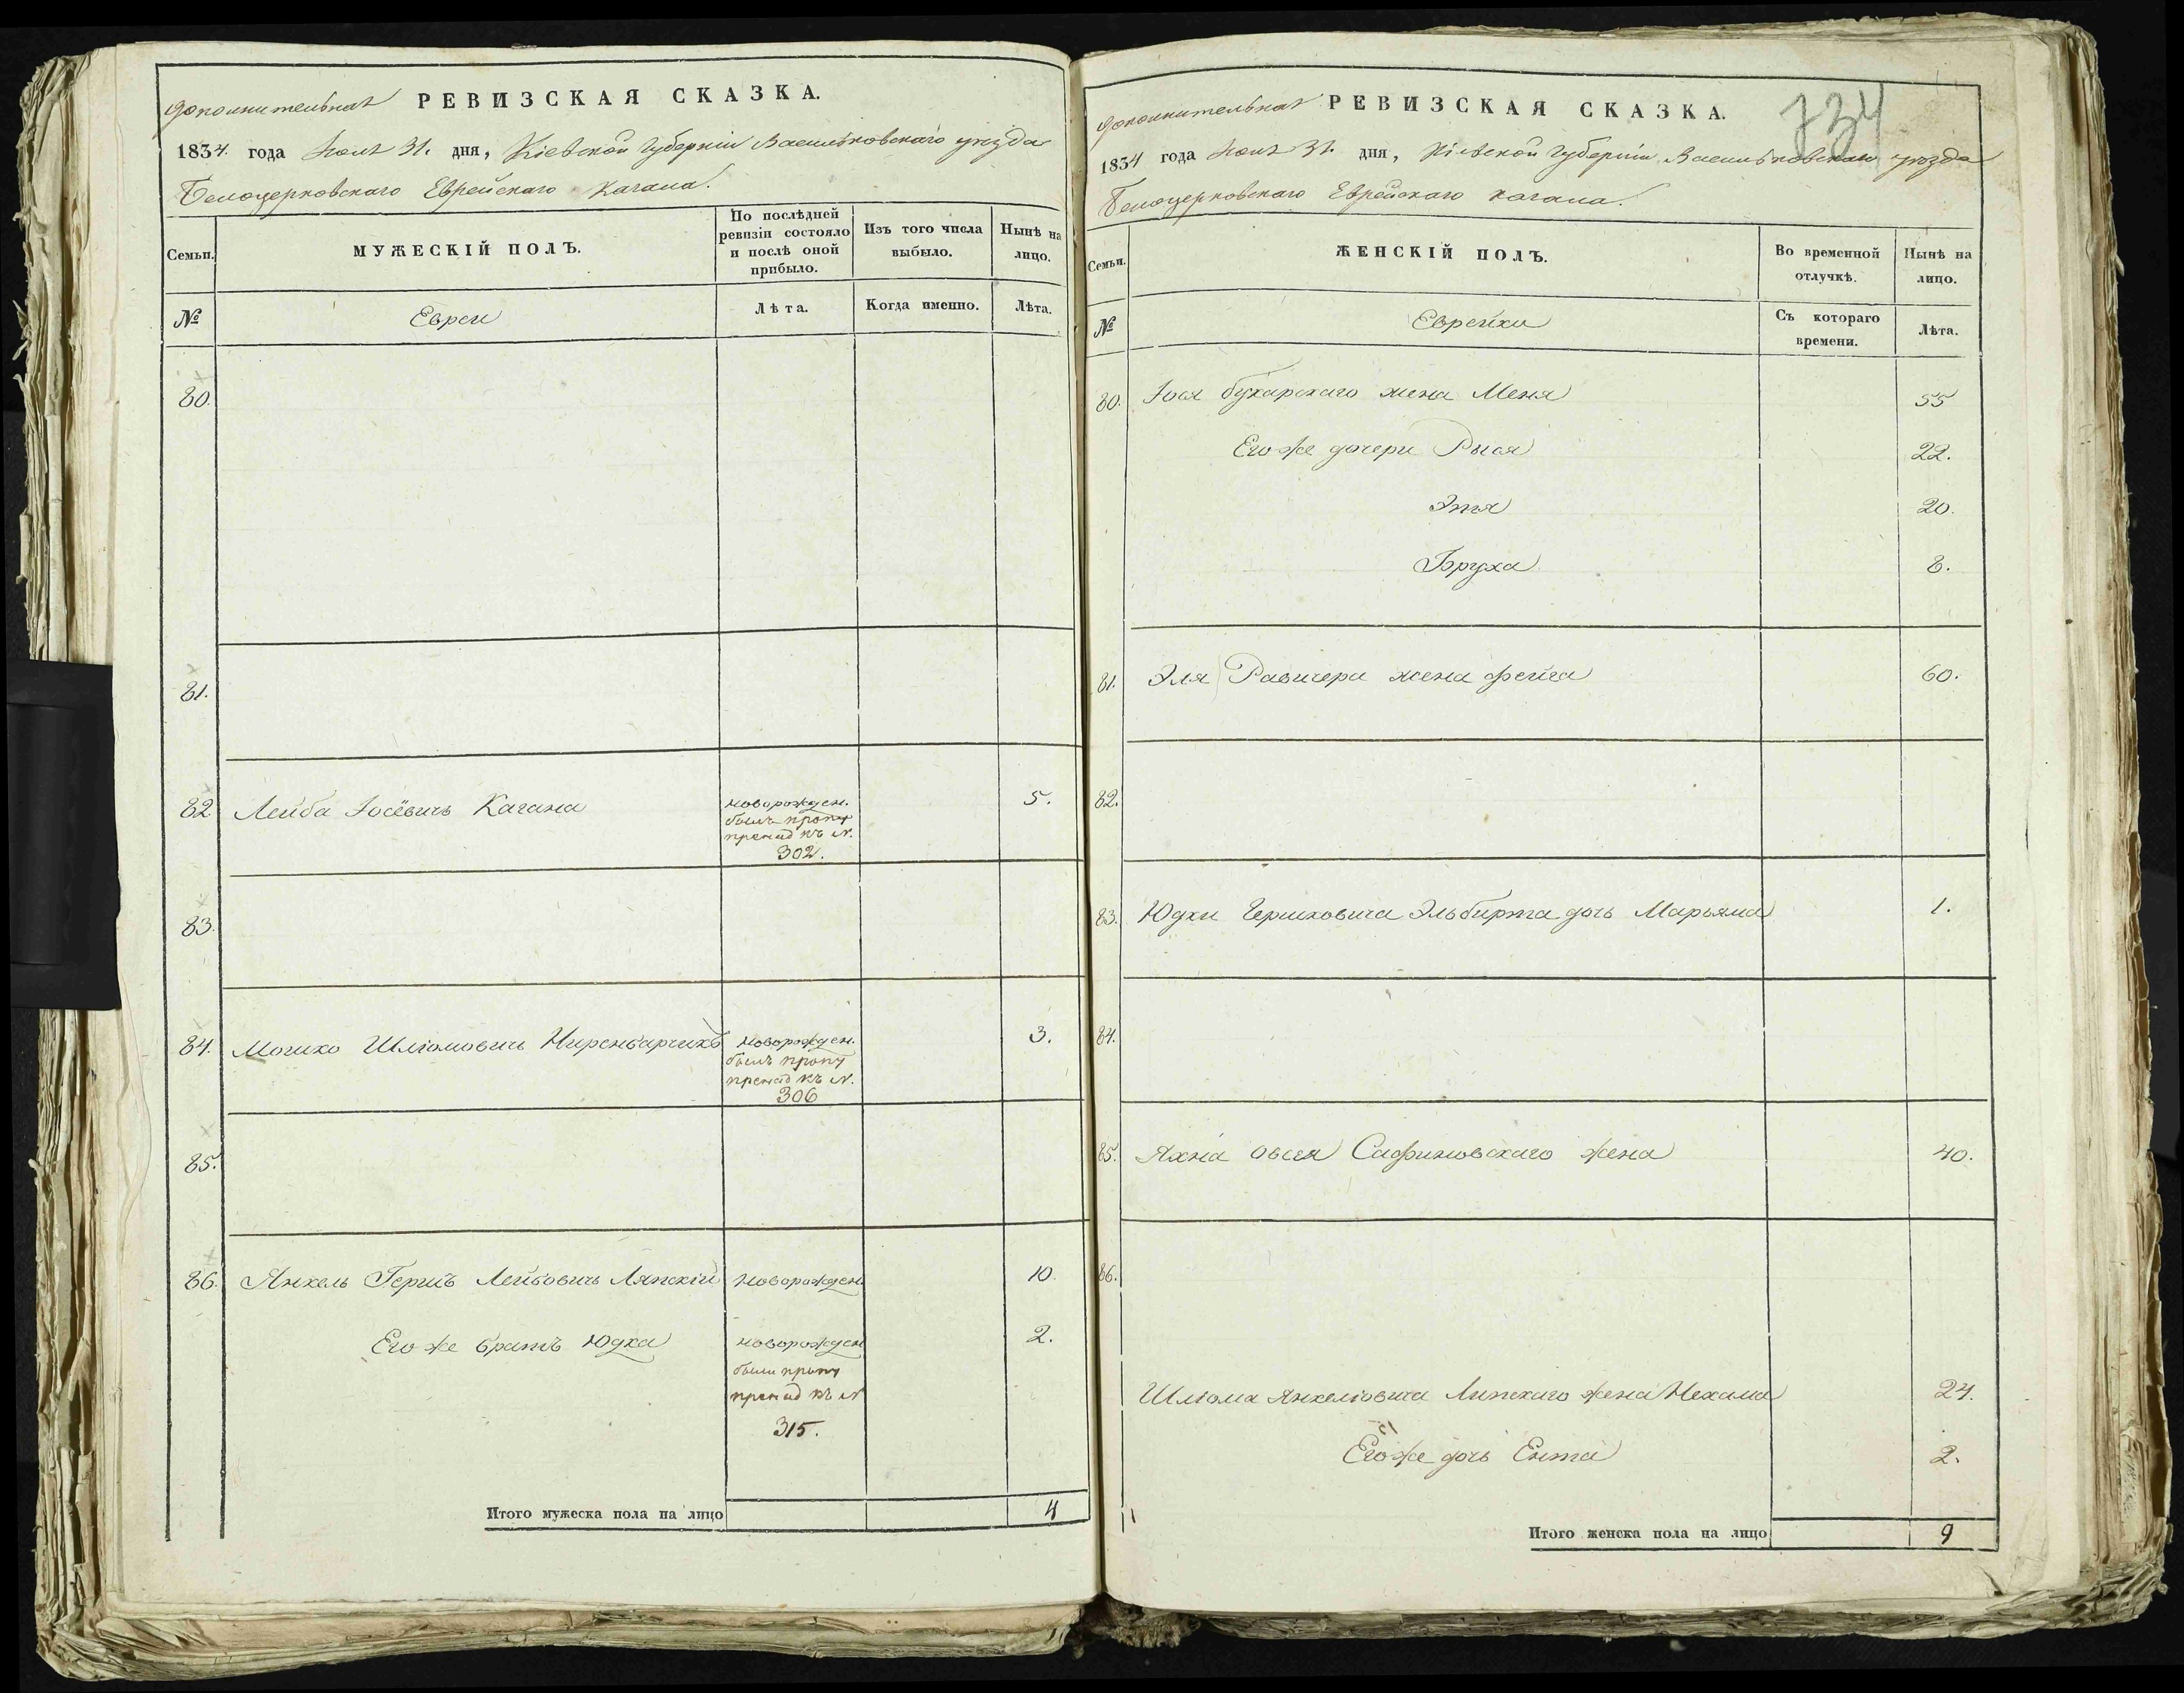 дополнительная РЕВИЗСКАЯ СКАЗКА.
1834. года 31. дня, Кіевской Губерніи Васильковскаго уезда
Белоцерковскаго Еврейскаго Кагала.
Семьи.
МУЖЕСКІЙ ПОЛЪ.
По послѣдней
ревизіи состояло
и послѣ оной
прибыло.
Изъ того числа
выбыло.
Нынѣ на
лицо.
№
Евреи
Лѣта.
Когда именно.
Лѣта.
80.
81.
82 Лейба Іосёвичъ Кагана новорожден. 5.
былъ пропу
къ N.
302.
83.
84. Мошко Шліомовичъ Ниренбарчикъ новорожден. 3.
былъ пропу
къ N.
306
85.
86. Янкель Гершъ Лейбовичъ Ляпскій новорожден 10.
Его же братъ Юдка новорожден 2.
были пропу
къ N
315.
Итого мужеска пола на лицо 4
734
дополнительная РЕВИЗСКАЯ СКАЗКА.
1834 года 31. дня, Кіевской Губерніи Васильковскаго уезда
Белоцерковскаго Еврейскаго кагала.
Семьи.
ЖЕНСКІЙ ПОЛЪ.
Во временной
отлучкѣ.
Нынѣ на
лицо.
№
Еврейки
Съ котораго
времени.
Лѣта.
80. Іося бухарскаго жена Меня 55
Его же дочери Рыся 22.
Этя 20.
Бруха 8.
81. Эля жена фейга 60.
82.
83. Юдки Гершковича Эльбирта дочь Марьяма 1.
84.
85. Яхна овсея Сафиновскаго жена 40.
86.
Шліома Янкеліовича Липскаго жена Нехама 24.
Его же дочь Ента 2.
Итого женска пола на лицо 9